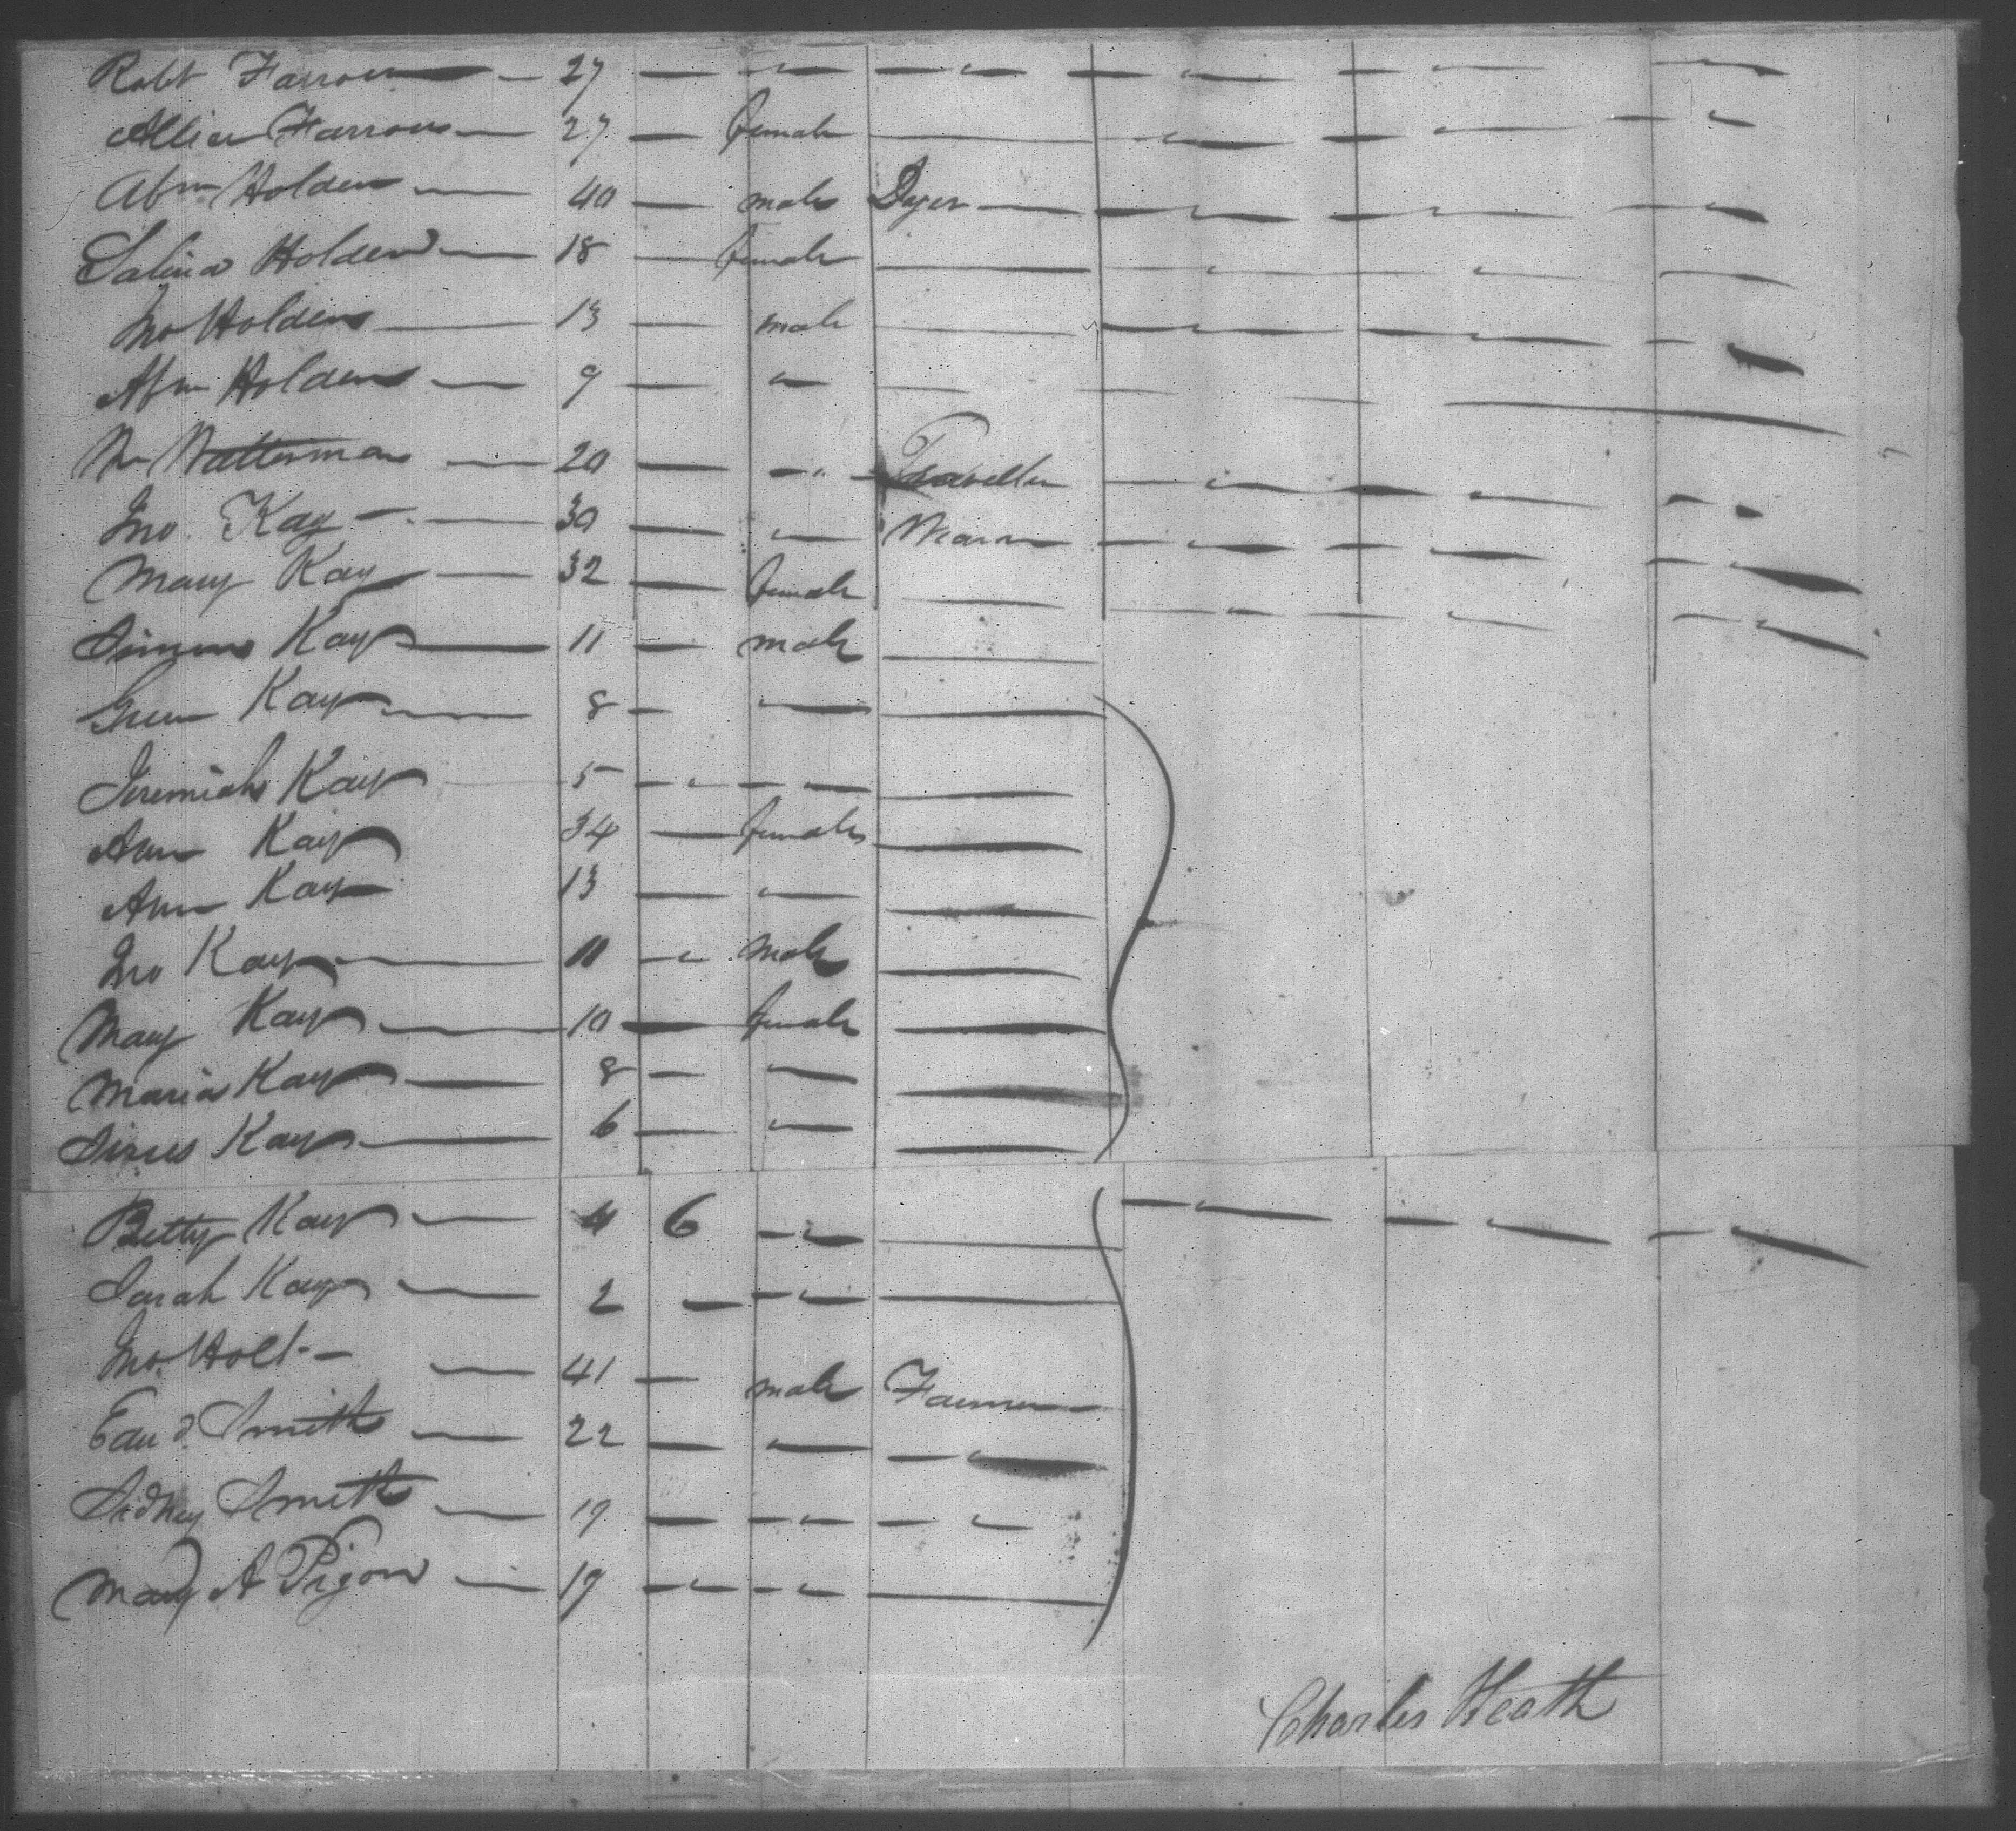 Robt Farrow 27
Farrow 27 female
Abm Holden 40 male Dyer
Salina Holden 18 female
Jno Holden 13 male
Abm Holden 9 "
Wm Watterman 20 " Traveller
Jno. Kay 30 "
Mary Kay 32 female
Kay 11 male
Kay 8
Jeremiah Kay 5 "
Ann Kay 34 female
Ann Kay 13 "
Jno Kay 11 " male
Mary Kay 10 female
Maria Kay 8
Kay 6
Betty Kay 4 6 "
Sarah Kay 2 "
Jno. Holt 41 male Farmer
Edwd. Smith 22
Sidney Smith 19 " "
Mary A Pigon 19 " "
Charles Heath